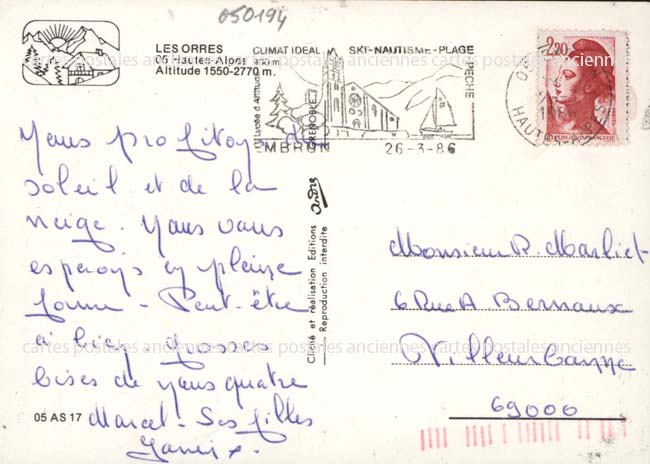 050194
LES ORRES
05 Hautes-Alpes
Altitude 1550-2770 m.
CLIMAT IDEAL SKI-NAUTISME-PLAGE
PECHE
Lycée d'Altitude
GRENOBLE
EMBRUN 26-3-86
2,20
HAUTES-
Nous profitons du
soleil et de la
neige. Nous vous
espérons en pleine
forme - Peut-être
à bien. Grosses
bises de nous quatre
Marcel - Ses filles
cartes postales anciennes cartes postales anciennes cartes postales anciennes
André
Cliché et réalisation Editions
Reproduction interdite
05 AS 17
Monsieur P. Marliet
6 Rue A Bernaux
Villeurbanne
69000